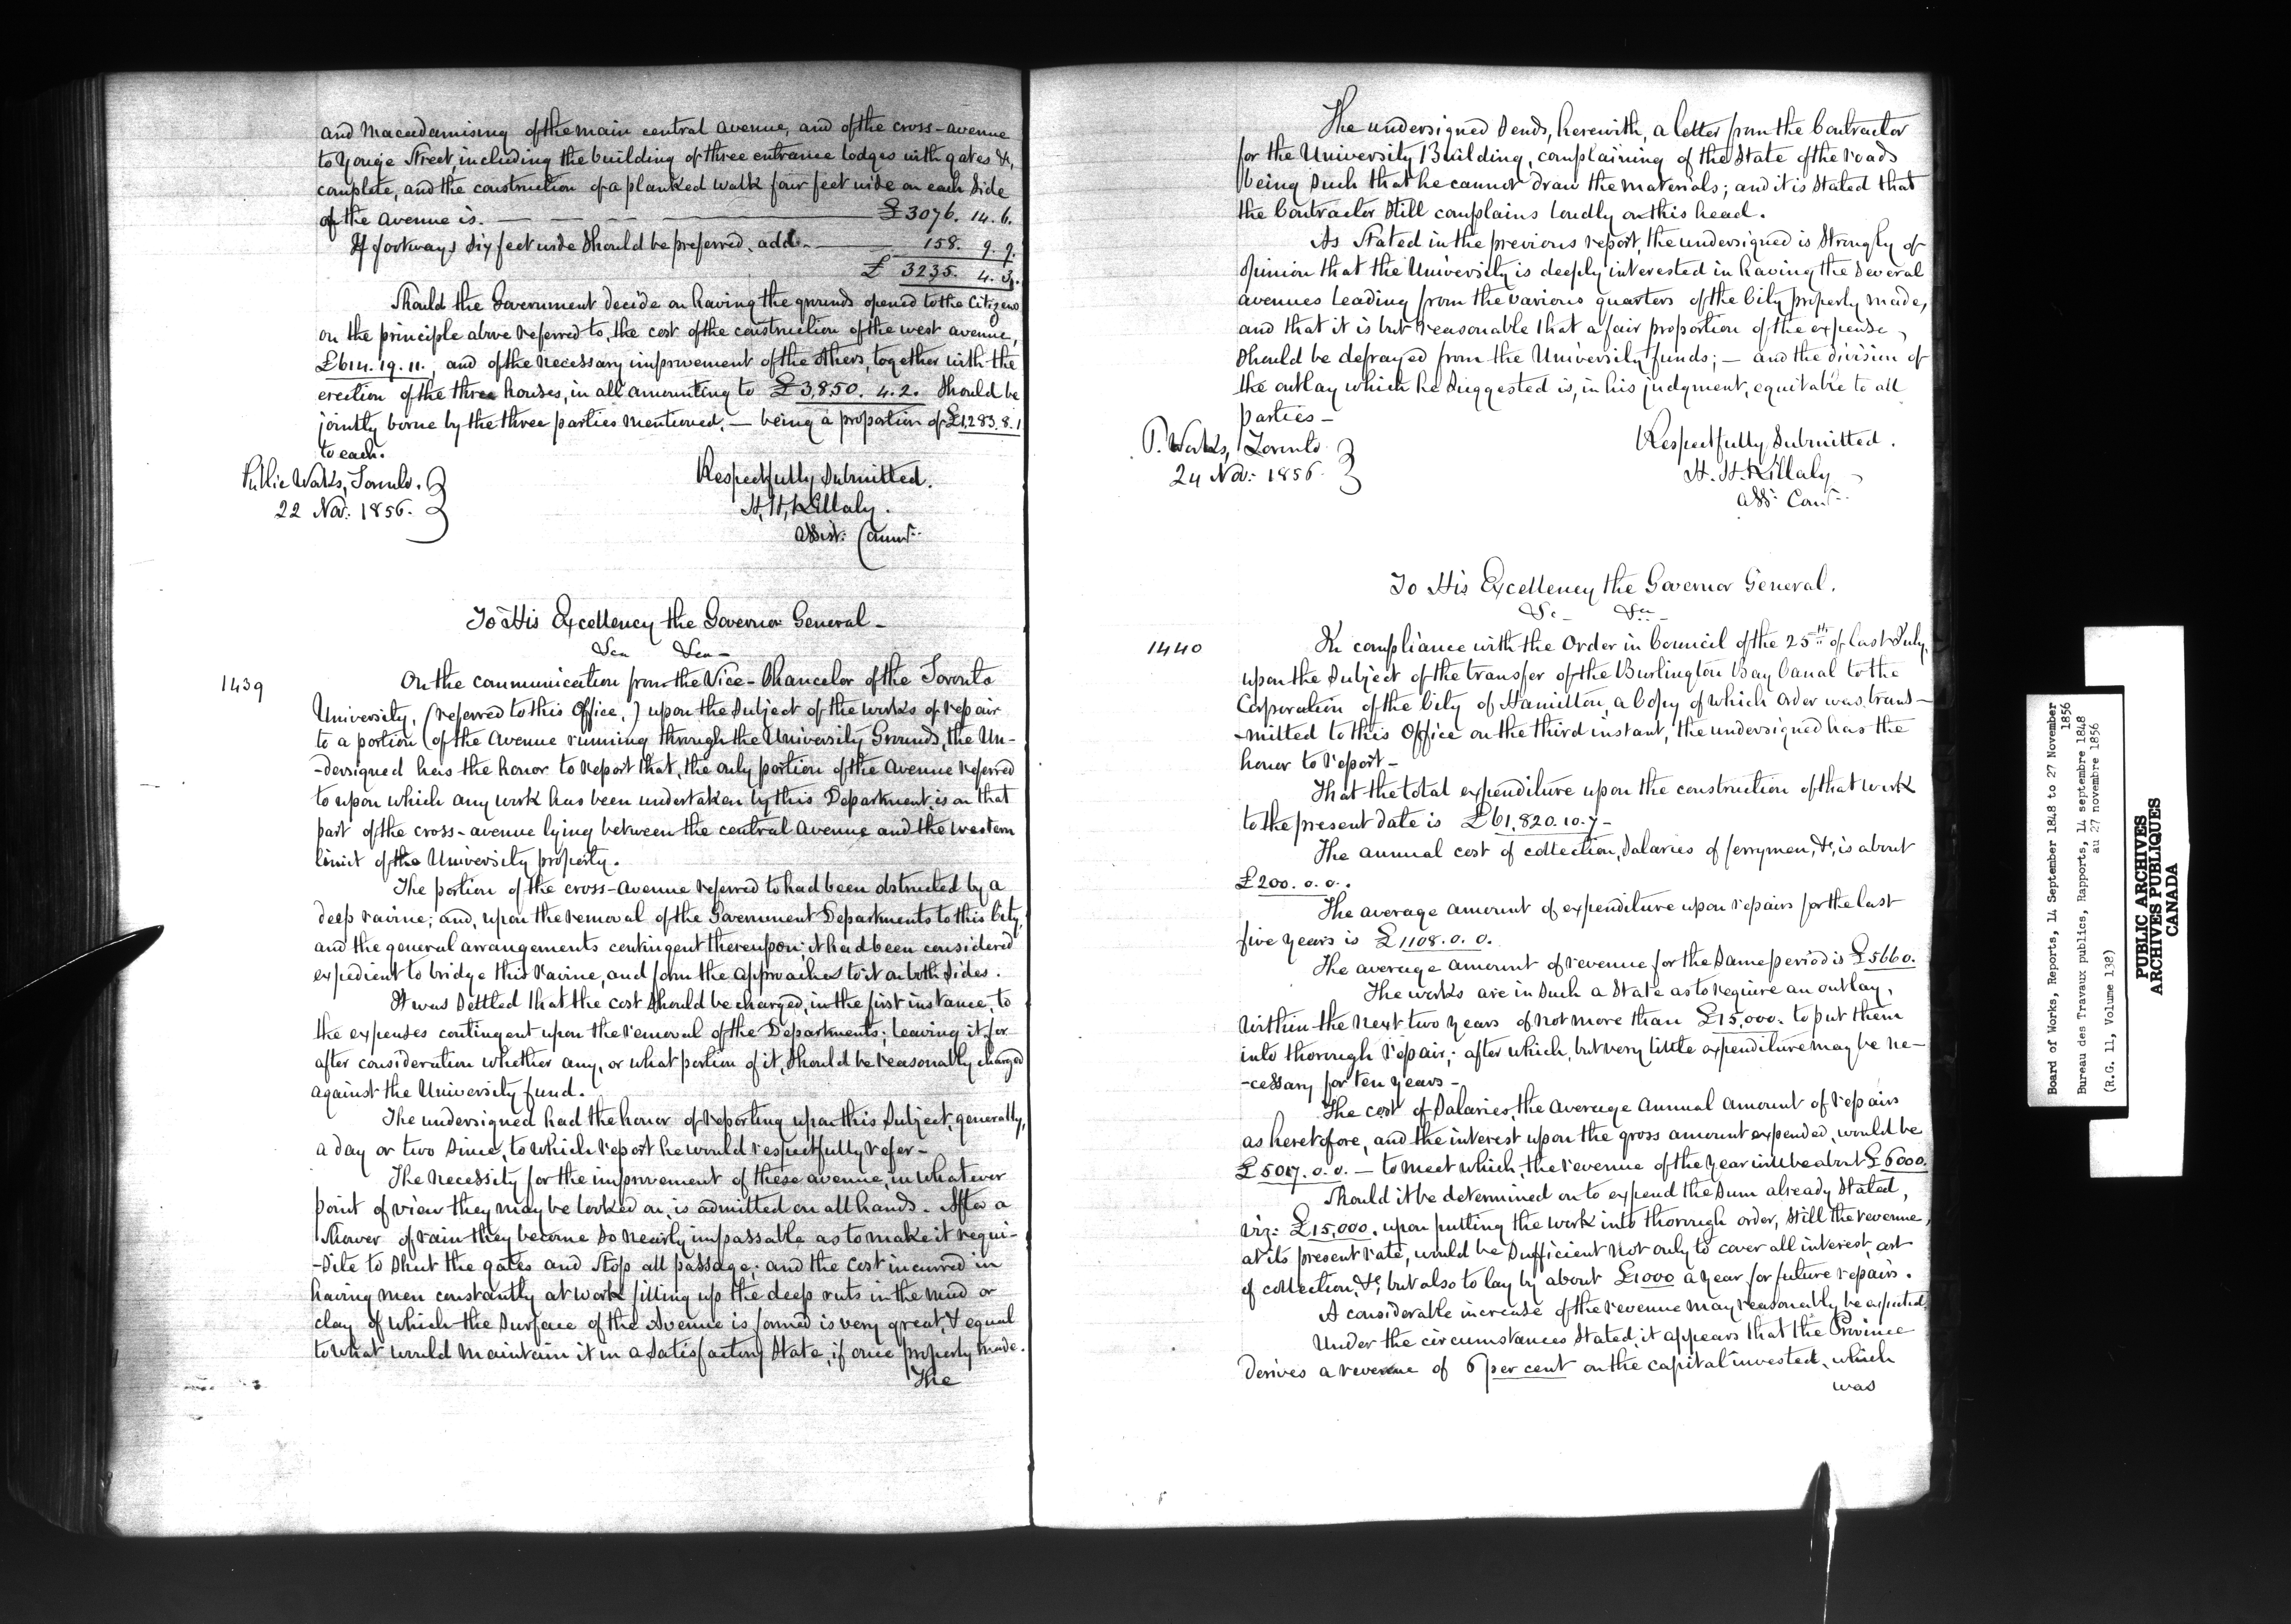 and Macadamising of the main central avenue, and of the cross-avenue
to Yonge Street, including the building of three entrance lodges with gates &c,
complete, and the construction of a planked walk four feet wide on each side
of the avenue is. £3076. 14. 6.
If footways six feet wide should be preferred, add. 158. 9. 9.
£ 3235. 4. 3.
Should the Government decide on having the grounds opened to the Citizens
on the principle above referred to, the cost of the construction of the west avenue,
£614. 19. 11., and of the necessary improvement of the others, together with the
erection of the three houses, in all amounting to £3,850. 4. 2. should be
jointly borne by the three parties mentioned, — being a proportion of £1,283. 8. 1
to each.
Respectfully submitted.
Public Works, Toronto.
22 Nov: 1856.
H. H. Killaly.
Assist: Commr:
To His Excellency the Governor General -
&ca &ca -
1439
On the communication from the Vice-Chancelor of the Toronto
University, (referred to this Office,) upon the subject of the works of repair
to a portion of the Avenue running through the University Grounds, the Un-
-dersigned has the honor to report that, the only portion of the Avenue referred
to upon which any work has been undertaken by this Department, is on that
part of the cross-avenue lying between the central Avenue and the western
limit of the University property.
The portion of the cross-avenue referred to had been obstructed by a
deep ravine; and, upon the removal of the Government Departments to this City,
and the general arrangements contingent thereupon, it had been considered
expedient to bridge this ravine, and form the approaches to it on both sides.
It was settled that the cost should be charged, in the first instance, to
the expenses contingent upon the removal of the Departments; leaving it for
after consideration whether any, or what portion of it, should be reasonably charged
against the University fund.
The undersigned had the honor of reporting upon this subject, generally,
a day or two since, to which report he would respectfully refer -
The necessity for the improvement of these avenue, in whatever
point of view they may be looked on, is admitted on all hands. After a
shower of rain they become so nearly impassable as to make it requi-
-site to shut the gates and stop all passage; and the cost incurred in
having men constantly at work filling up the deep ruts in the mud or
clay of which the surface of the Avenue is formed is very great, & equal
to what would maintain it in a satisfactory state, if once properly made.
The
The undersigned sends, herewith, a letter from the Contractor
for the University Building, complaining of the state of the roads
being such that he cannot draw the materials; and it is stated that
the Contractor still complains loudly on this head.
As stated in the previous report, the undersigned is strongly of
opinion that the University is deeply interested in having the several
avenues leading from the various quarters of the City properly made,
and that it is but reasonable that a fair proportion of the expense,
should be defrayed from the University funds; — and the division of
the outlay which he suggested is, in his judgment, equitable to all
parties -
Respectfully submitted.
P. Works, Toronto
24 Nov: 1856.
H. H. Killaly
Asst Comr:
To His Excellency the Governor General.
&c &c
1440
In compliance with the Order in Council of the 25th of last July,
upon the subject of the transfer of the Burlington Bay Canal to the
Corporation of the City of Hamilton, a copy of which order was trans-
-mitted to this Office on the third instant, the undersigned has the
honor to report -
That the total expenditure upon the construction of that work
to the present date is £61,820. 10. 7 -
The annual cost of collection, salaries of ferrymen, &c, is about
£200. 0. 0.
The average amount of expenditure upon repairs for the last
five years is £1108. 0. 0.
The average amount of revenue for the same period is £5660.
The works are in such a state as to require an outlay,
within the next two years of not more than £15,000. to put them
into thorough repair; after which, but very little expenditure may be ne-
-cessary for ten years -
The cost of salaries, the average annual amount of repairs
as heretofore, and the interest upon the gross amount expended, would be
£5017. 0. 0. — to meet which, the revenue of the year will be about £6000.
Should it be determined on to expend the sum already stated,
viz: £15,000. upon putting the work into thorough order, still the revenue,
at its present rate, would be sufficient not only to cover all interest, cost
of collection, &c, but also to lay by about £1000 a year for future repairs.
A considerable increase of the revenue may reasonably be expected.
Under the circumstances stated, it appears that the Province
derives a revenue of 6 per cent on the capital invested, which
was
Board of Works, Reports, 14 September 1848 to 27 November
1856
Bureau des Travaux publics, Rapports, 14 septembre 1848
au 27 novembre 1856
(R.G. 11, Volume 138)
PUBLIC ARCHIVES
ARCHIVES PUBLIQUES
CANADA